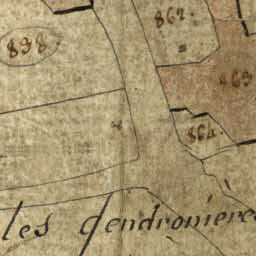 862.
898.
863
864.
les Gendronières